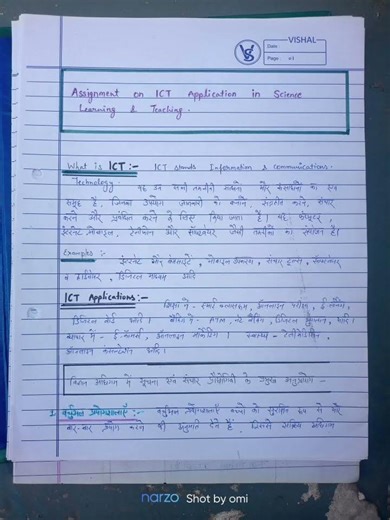 VISHAL
Date:
Page:
Assignment on ICT Application in Science
Learning & Teaching.
What is ICT:- ICT stands Information & communications.
Technology. यह उन सभी तकनीकी साधनों और संसाधनों का एक
समूह है, जिनका उपयोग जानकारी को बनाने, संग्रहीत करने, संचार
करने और प्रबंधित करने के लिए किया जाता है। यह कंप्यूटर,
इंटरनेट, मोबाइल, टेलीफोन और सॉफ्टवेयर जैसी तकनीकों का संयोजन है।
Examples :- इंटरनेट और वेबसाइटें, मोबाइल उपकरण, संचार टूल्स, सॉफ्टवेयर
व हार्डवेयर, डिजिटल माध्यम आदि
ICT Applications:- शिक्षा में - स्मार्ट क्लासरूम, ऑनलाइन परीक्षा, ई-लर्निंग,
डिजिटल बोर्ड आदि। बैंकिंग में - नेट बैंकिंग, डिजिटल भुगतान, आदि।
व्यापार में - ई-कॉमर्स, ऑनलाइन मार्केटिंग। स्वास्थ्य - टेलीमेडिसिन,
ऑनलाइन कंसल्टेशन आदि।
विज्ञान अधिगम में सूचना एवं संचार प्रौद्योगिकी के प्रमुख अनुप्रयोग -
1. वर्चुअल प्रयोगशालाएँ :- वर्चुअल प्रयोगशालाएँ बच्चों को सुरक्षित रूप से और
बार-बार प्रयोग करने की अनुमति देते हैं, जिससे सक्रिय अधिगम
narzo Shot by omi